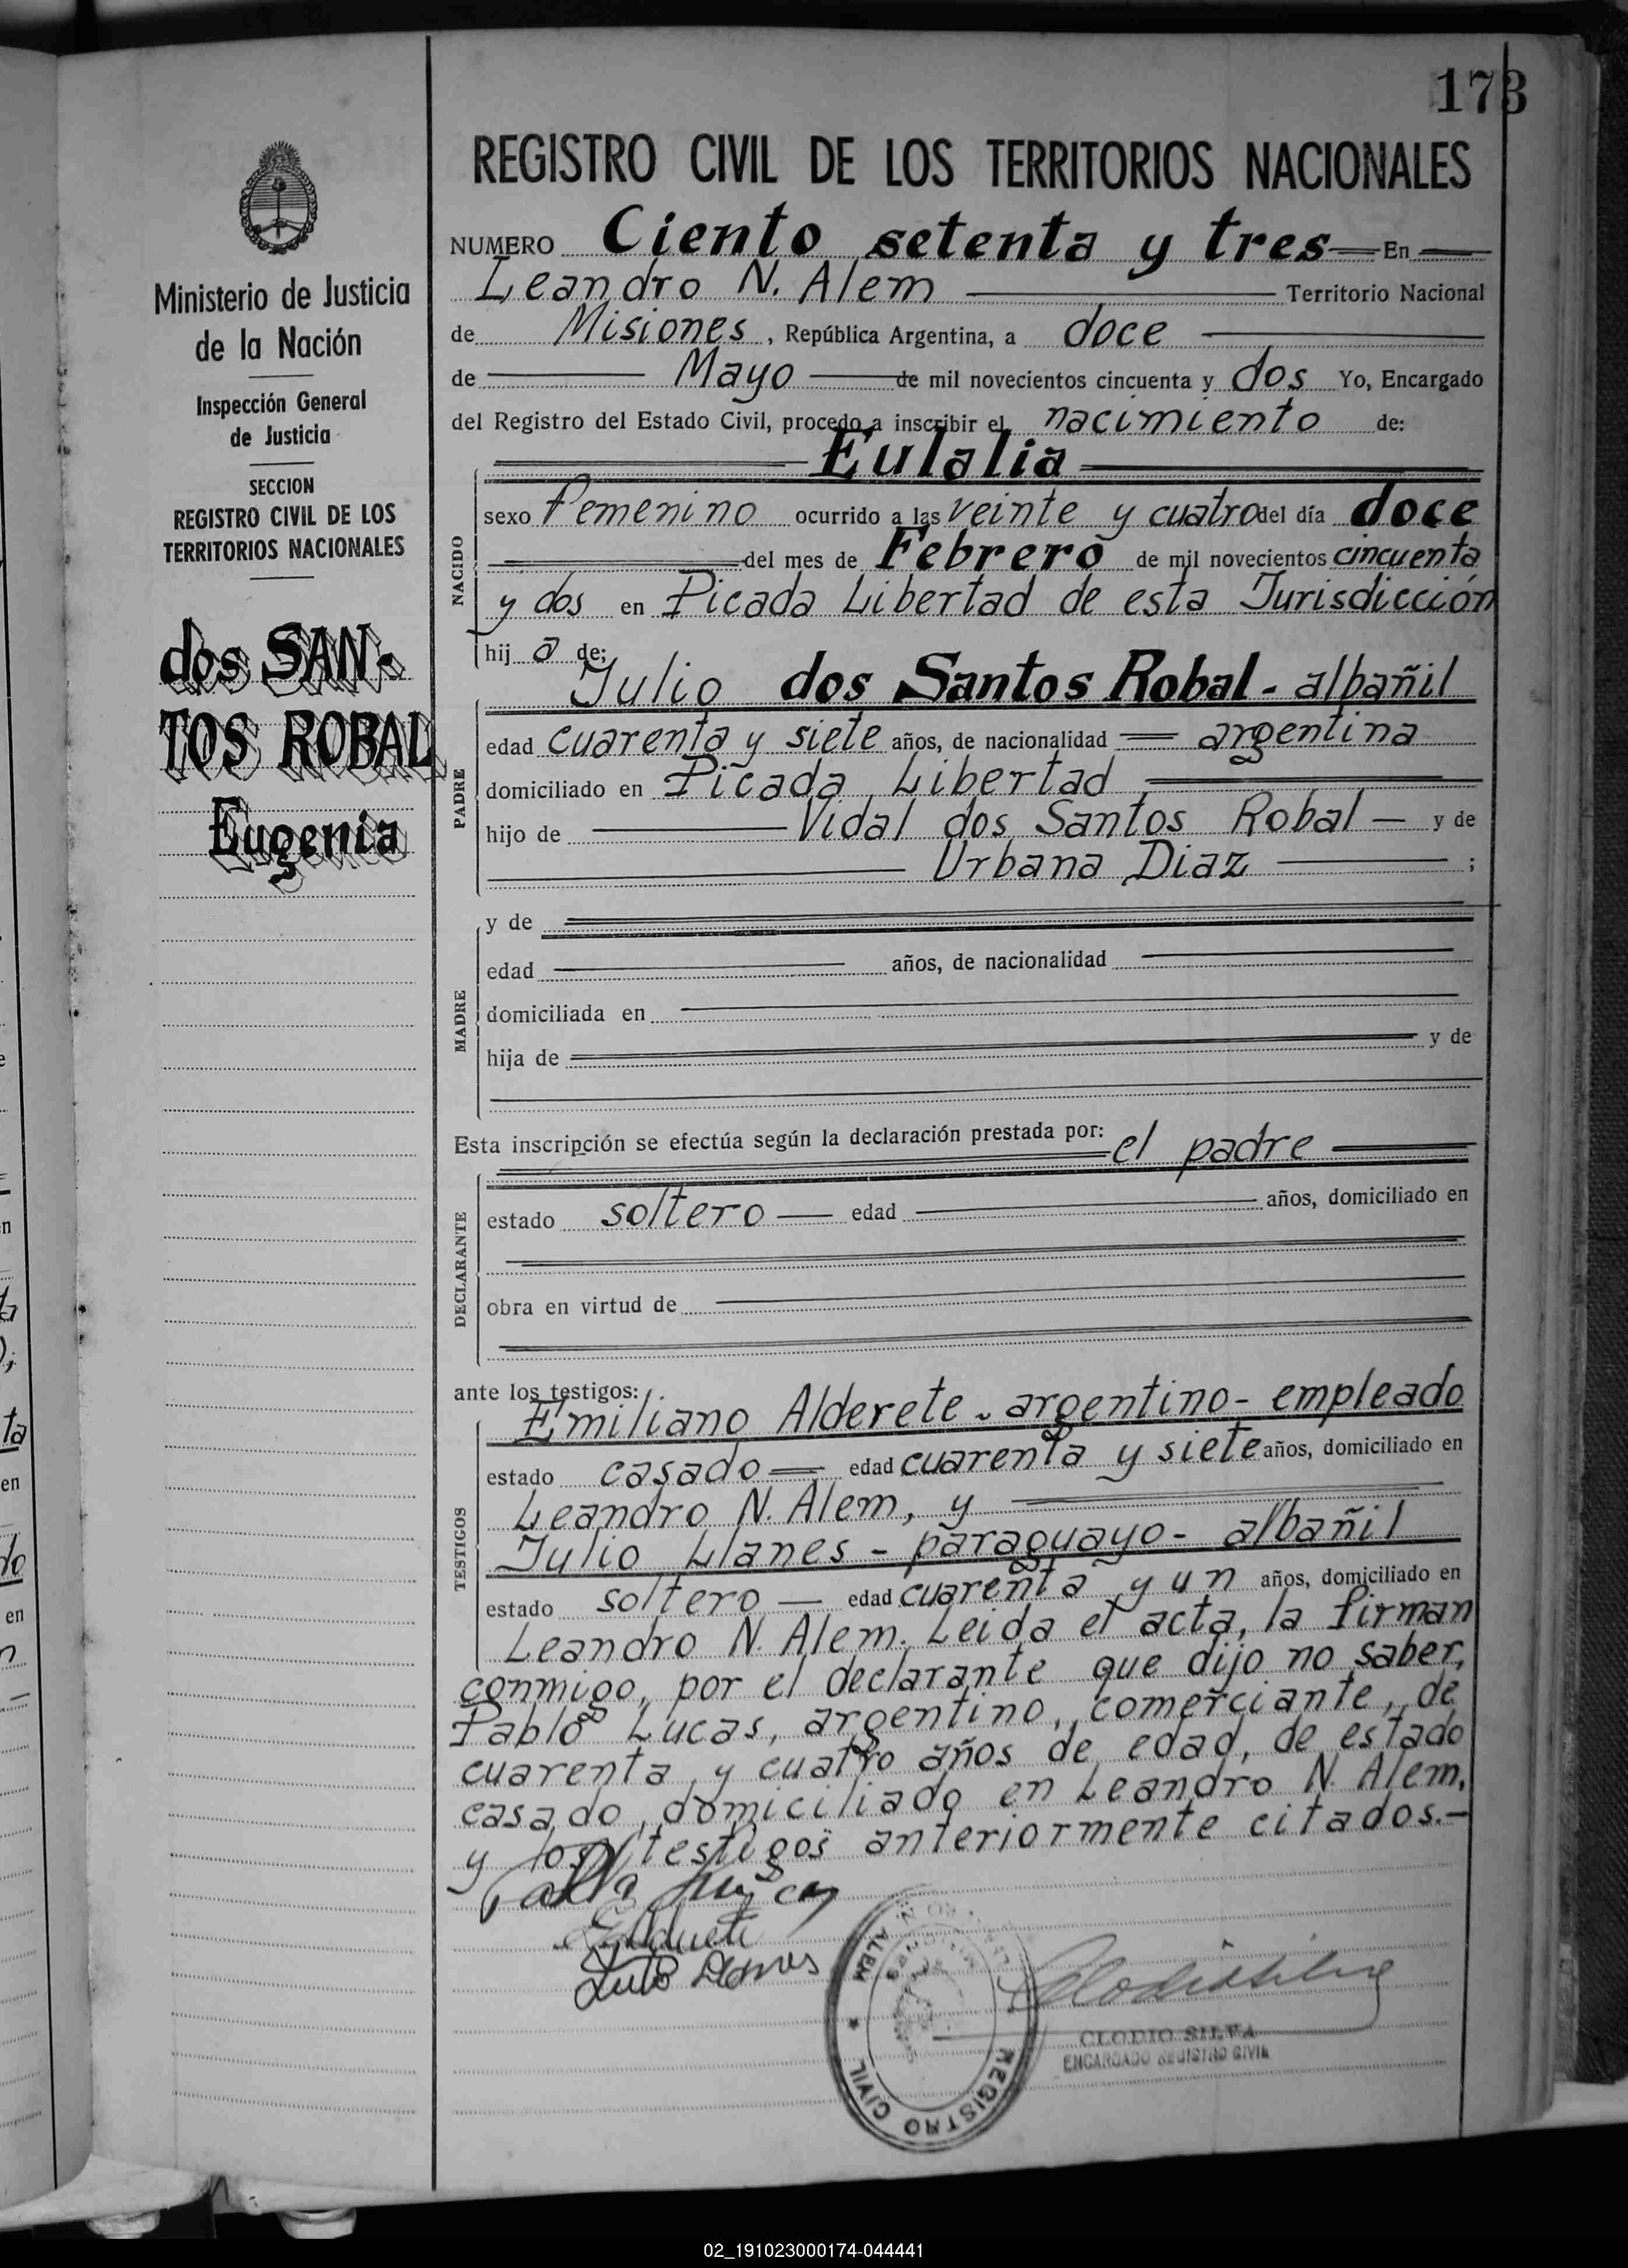 173
REGISTRO CIVIL DE LOS TERRITORIOS NACIONALES
Ministerio de Justicia
de la Nación
Inspección General
de Justicia
SECCION
REGISTRO CIVIL DE LOS
TERRITORIOS NACIONALES
dos SAN-
TOS ROBAL
Eugenia
NUMERO Ciento setenta y tres En
Leandro N. Alem Territorio Nacional
de Misiones, República Argentina, a doce
de Mayo de mil novecientos cincuenta y dos Yo, Encargado
del Registro del Estado Civil, procedo a inscribir el nacimiento de:
Eulalia
NACIDO
sexo femenino ocurrido a las veinte y cuatro del día doce
del mes de Febrero de mil novecientos cincuenta
y dos en Picada Libertad de esta Jurisdicción
hij a de:
Julio dos Santos Robal - albañil
PADRE
edad cuarenta y siete años, de nacionalidad argentina
domiciliado en Picada Libertad
hijo de Vidal dos Santos Robal y de
Urbana Diaz ;
y de
MADRE
edad años, de nacionalidad
domiciliada en
hija de y de
Esta inscripción se efectúa según la declaración prestada por: el padre
DECLARANTE
estado soltero edad años, domiciliado en
obra en virtud de
ante los testigos:
Emiliano Alderete - argentino - empleado
TESTIGOS
estado casado edad cuarenta y siete años, domiciliado en
Leandro N. Alem, y
Julio Llanes - paraguayo - albañil
estado soltero edad cuarenta y un años, domiciliado en
Leandro N. Alem. Leida el acta, la firman
conmigo, por el declarante que dijo no saber,
Pablo Lucas, argentino, comerciante, de
cuarenta y cuatro años de edad, de estado
casado, domiciliado en Leandro N. Alem,
y los testigos anteriormente citados.-
REGISTRO CIVIL
ALEM
CLODIO SILVA
ENCARGADO REGISTRO CIVIL
02_191023000174-044441